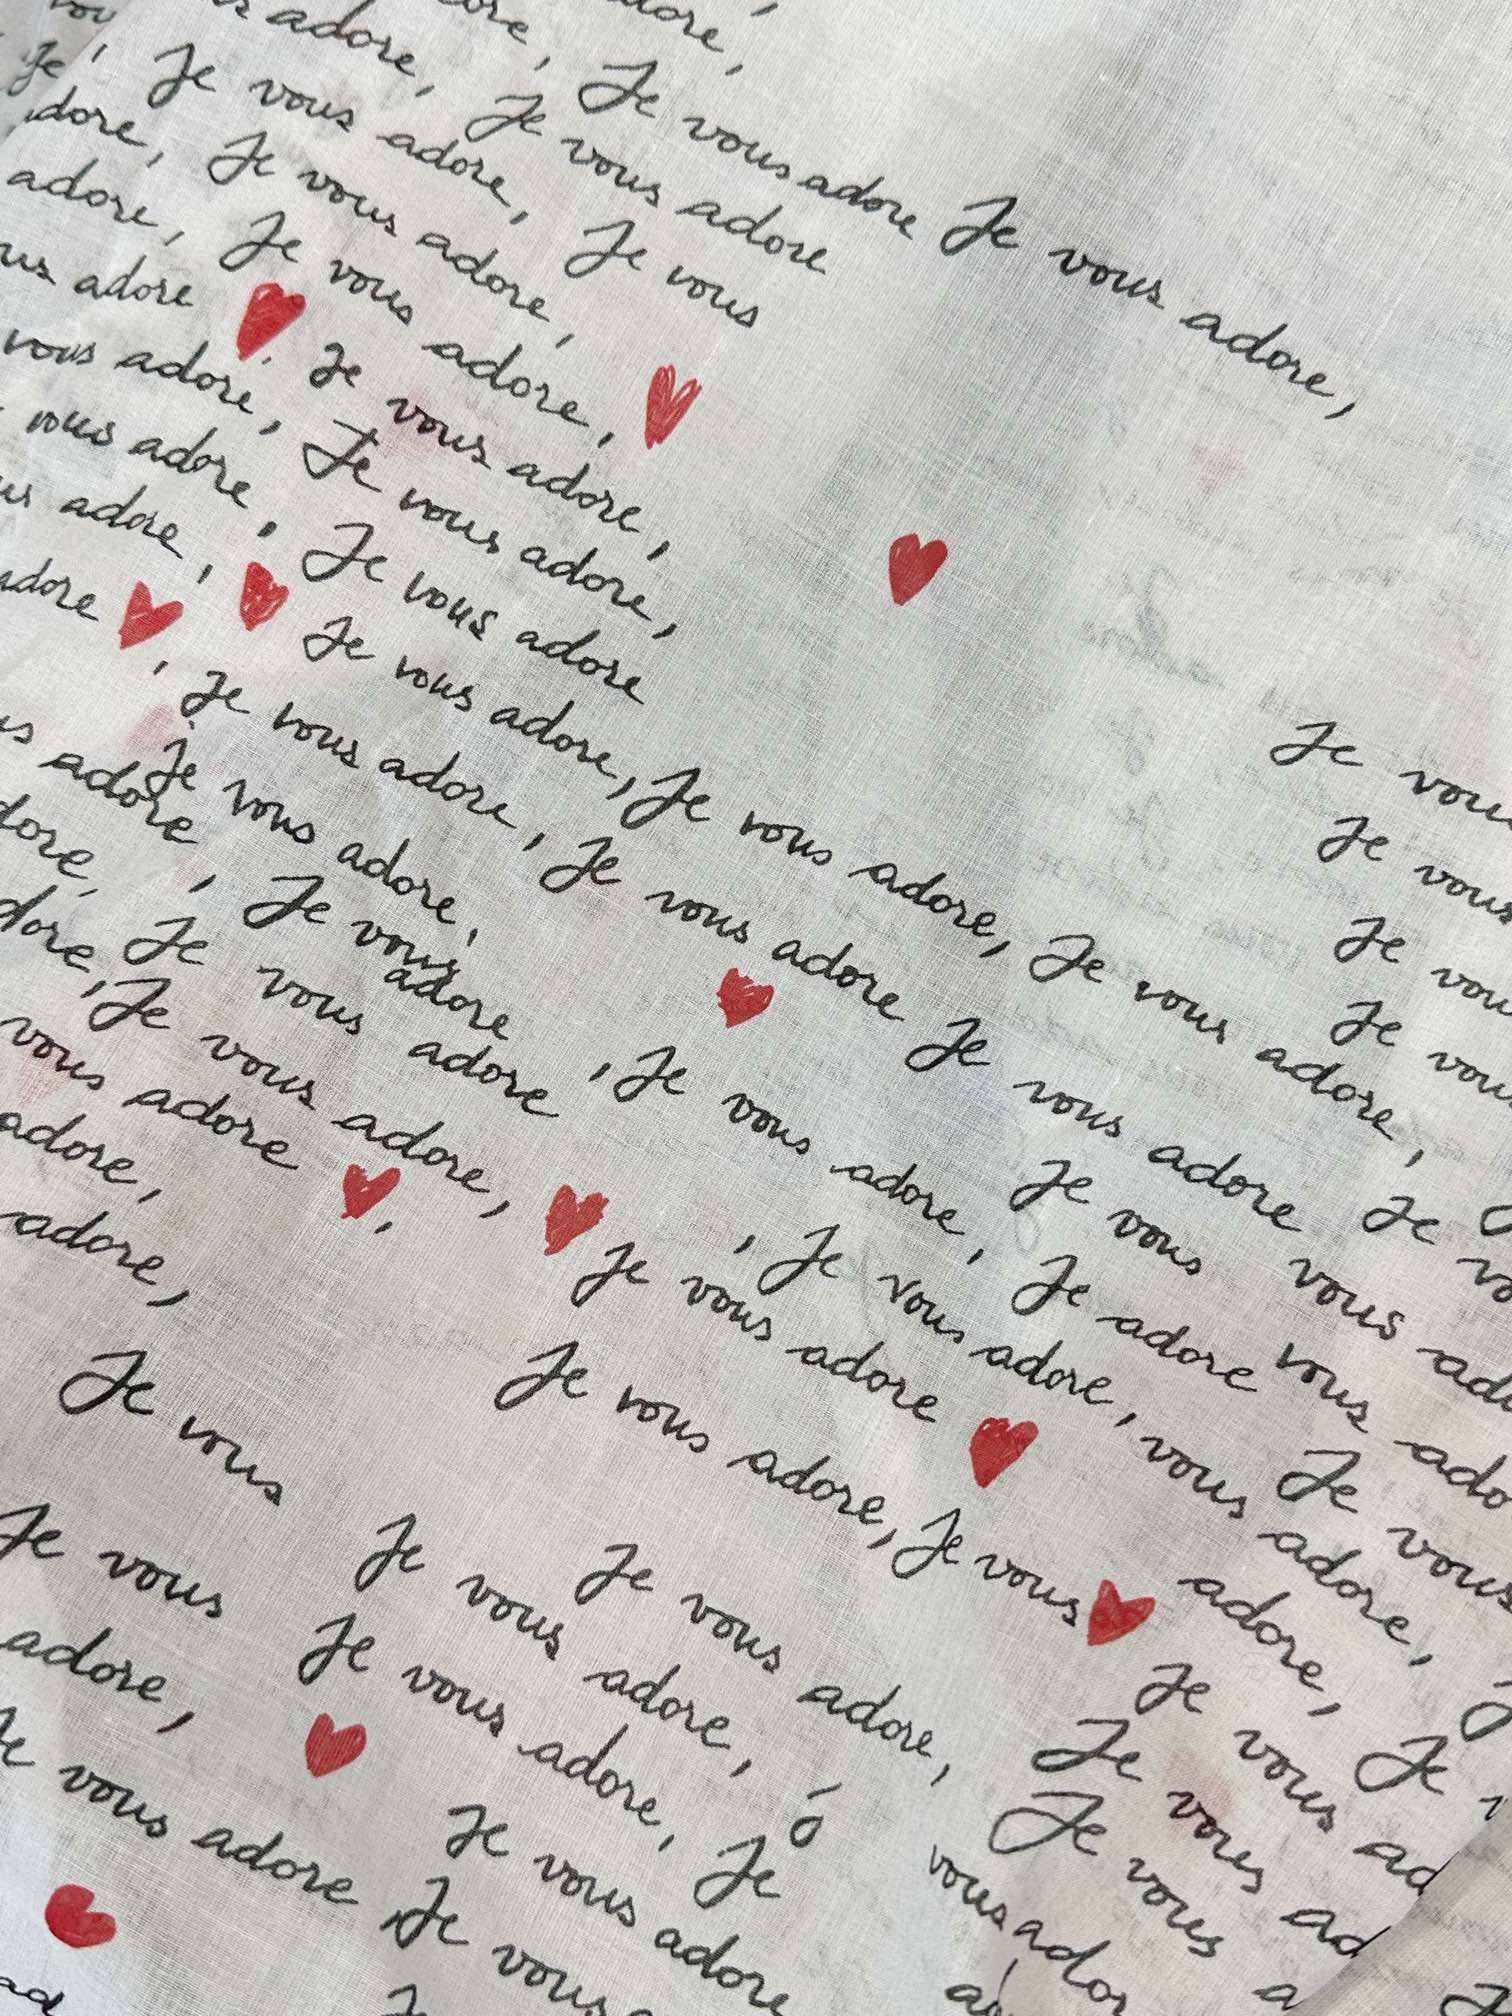 adore,
adore, Je vous adore Je vous adore,
Je vous adore, Je vous adore
adore, Je vous adore, Je vous
adore, Je vous adore,
adore Je vous adore,
vous adore, Je vous adore,
vous adore, Je vous adore
adore, Je vous adore, Je vous adore, Je vous adore,
adore, Je vous adore, Je vous adore Je vous adore Je
Je vous adore,
adore, Je vous adore, Je vous adore, Je vous
Je vous adore, Je vous adore, Je adore vous
Je vous adore, Je vous adore
vous adore
adore, Je vous adore, Je vous
adore,
Je vous
Je vous
Je vous
Je vous
Je vous
vous adore,
adore,
Je vous Je vous adore, Je vous adore,
Je vous Je vous adore, Je
adore,
Je vous adore, Je vous adore
Je vous
Je vous
Je vous
vous